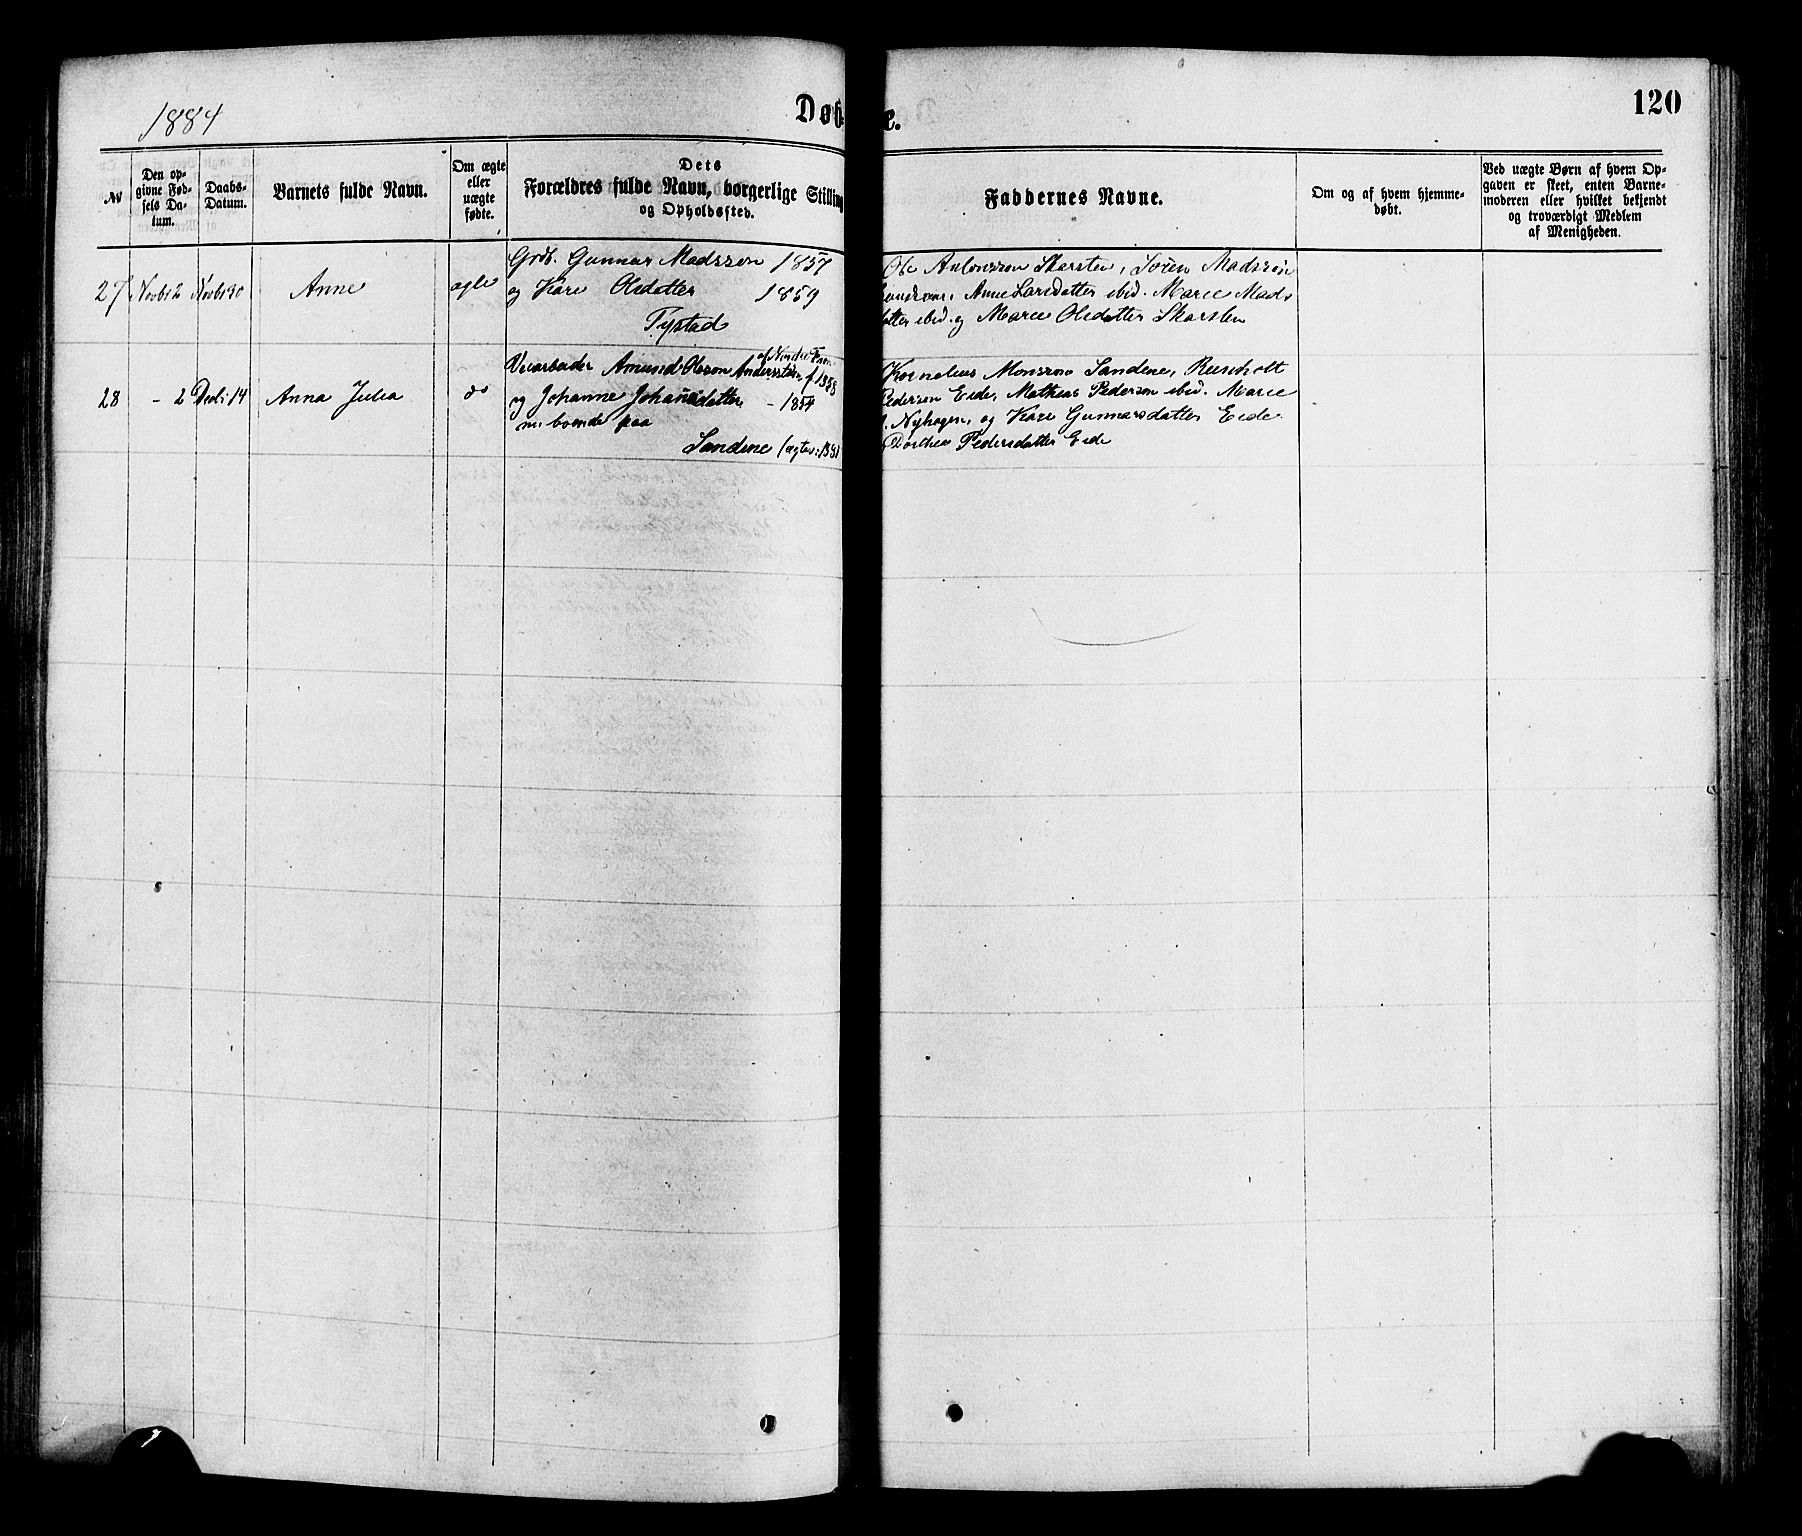 1884
Døb
e.
120
No
Den op-
givne Fød-
sels Da-
tum.
Daabs-
Datum.
Barnets fulde Navn.
Om ægte
eller
uægte
fødte.
Dets
Forældres fulde Navn, borgerlige Stilling
og Opholdssted.
Faddernes Navne.
Om og af hvem hjemme-
døbt.
Ved uægte Børn af hvem Op-
gaven er skeet, enten Barne-
moderen eller hvilket bekjendt
og troværdigt Medlem
af Menigheden.
27 Novbr 2 Novbr 30 Anne ægte
Grdb. Gunnar Madssøn 1857
og Kare Olsdatter 1859
Tystad
Ole Antonssøn Skarsten, Søren Madssøn
Anne Larsdatter ibid. Marie Mads
datter ibid. og Maree Olsdatter Skarsten
28 - 2 Decbr 14 Anna Julia do
Veiarbeider Amund Olsson f. 1858
og Johanne Johansdatter - 1854
nu boende paa
Sandene
Kornelius Monssøn Sandene, Reinholt
Pedersøn Eide, Mathias Pedersøn ibid. Marie
Nyhagen, og Kare Gunnarsdatter Eide
Dorthea Pedersdatter Eide